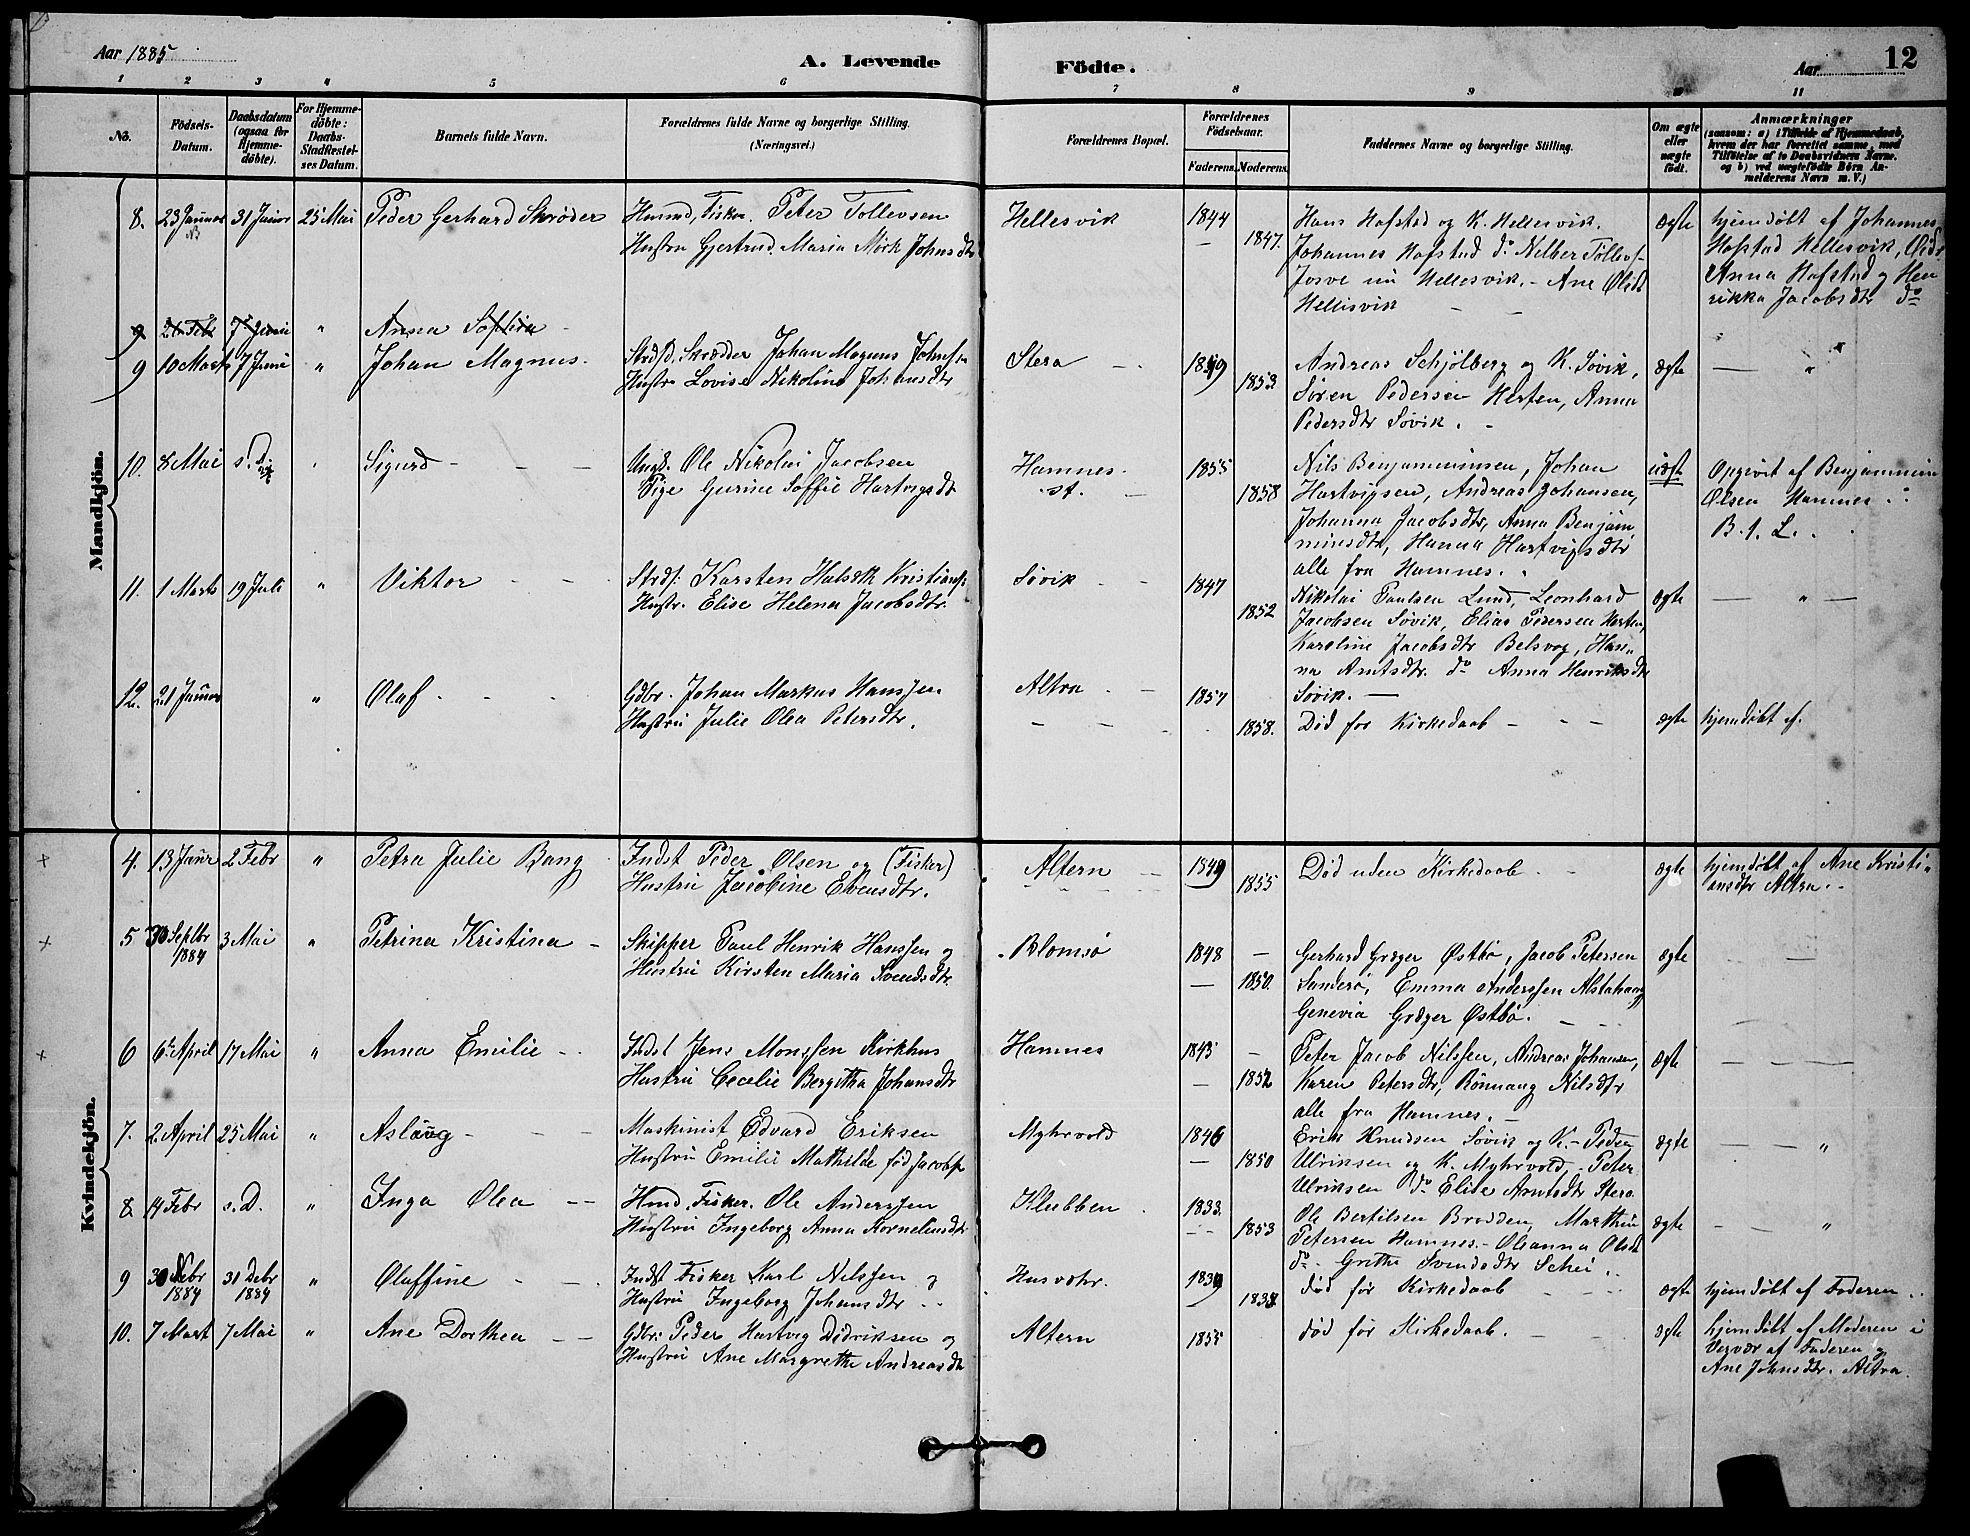 Aar 1885
A. Levende
Födte.
Aar
12
1 2 3 4 5 6 7 8 9 10 11
No.
Födsels-
Datum.
Daabsdatum
(ogsaa for
Hjemme-
döbte).
For Hjemme-
döbte:
Daabs-
Stadfæstel-
ses Datum.
Barnets fulde Navn.
Forældrenes fulde Navne og borgerlige Stilling.
(Næringsvei.)
Forældrenes Bopæl.
Forældrenes
Födselsaar.
Faderens. Moderens.
Faddernes Navne og borgerlige Stilling.
Om ægte
eller
uægte
födt.
Anmærkninger
(saasom: a) i Tilfælde af Hjemmedaab,
hvem der har forrettet samme, med
Tilföielse af to Daabsvidners Navne.
og b) ved uægtefödte Börn An-
melderens Navn m. V.)
Mandkjön.
8. 23 Januar 31 Januar 25 Mai Peder Gerhard Skrøder
Husmd, Fisker. Peter Tollevsen
Hustru Gjertrud Maria Mörk Johnsdtr
Hellesvik
1844
1847.
Hans Hofstad og K. Hellesvik.
Johannes Hofstad do Nelber Tollevs-
Hellesvik. - Ane Olsdt
Hellisvik
ægte
hjemdøbt af Johannes
Hofstad Hellesvik,
Anna Hofstad og Hen
rikka Jacobsdtr do
9 21 Febr 7 Juni " Anna Sofira
9 10 Marts 7 Juni " Johan Magnus.
Strdsd, Skrædder Johan Magnus Johns/n
Hustr. Lovise Nikoline Johansdtr
Stera
1849
1853
Andreas Schjölberg og K. Søvik,
Søren Pedersen Hesten, Anna
Pedersdtr Søvik.
ægte
"
10. 8 Mai s. D. Sigurd
Ungk. Ole Nikolai Jacobsen
Pige Gurine Soffie Hartvigsdt
Hamnes.
st.
1855
1858
Nils Benjaminsen, Johan
Hartvigsen, Andreas Johansen,
Johanna Jacobsdtr, Anna Benjam
minsdtr, Hanna Hartvigsdtr
alle fra Hamnes.
uægt
Opgivet af Benjammin
Olsen Hamnes
B. 1. L.
11. 1 Marts 19 Juli " Viktor
Strds: Karsten Hulsek Kristians:
Hustr. Elise Helena Jacobsdtr.
Søvik
1847
1852
Nikolai Paulsen Lund, Leonhard
Jacobsen Søvik, Elias Pedersen Hesten,
Karoline Jacobsdtr Belsvog, Han-
na Arntsdtr. do Anna Henriksdtr
Søvik.
ægte
"
12. 21 Januar " Olaf
Gdbr. Johan Markus Hanssen
Hustru Julie Olea Petersdtr.
Altra
1857
1858.
Død før Kirkedaab
ægte
hjemdøbt af.
Kvindekjön.
4. 13 Janr 2 Febr " Petra Julie Bang
Indst Peder Olsen og (Fisker)
Hustru Jacobine Ebensdtr.
Altern
1849
1855
Død uden Kirkedaab
ægte
hjemdøbt af Ane Kristi-
ansdtr Altra.
5 30 Septbr 3 Mai " Petrina Kristina
1884
Skipper Paul Henrik Hanssen og
Hustru Kirsten Maria Svendsdtr.
Blomsø
1848
1850.
Gerhard Græger Østbø, Jacob Petersen
Sanderø, Emma Anderssen Alstahaug
Genevia Græger Østbø.
ægte
6 6te April 17 Mai " Anna Emilie
Indst Jens Monssen Kirkhus
Hustru Cecelie Bergitha Johansdtr
Hamnes
1843
1852
Peter Jacob Nilssen, Andreas Johansen,
Karen Petersdtr, Rönnaug Nilsdtr
alle fra Hamnes.
ægte
7. 2 April 25 Mai " Aslaug
Maskinist Edvard Eriksen
Hustru Emilie Mathilde fød Jacobs
Myhrvold
1846
1850
Erik Knudsen Søvik og K. - Peder
Ulriksen og K. Myhrvold, - Peter
Ulriksen do Elise Arntsdtr Stera
ægte
"
8. 14 Febr s. D. " Inga Olea
Hmd. Fisker. Ole Anderssen
Hustru Ingeborg Anna Korneliusdtr
Klubben
1833.
1853
Ole Bertilsen Brodden, Marthin
Petersen Hamnes - Oleanna Olsdt
do. Grethe Svendsdtr Schei
ægte
"
9 30 Nbr 31 Debr " Oluffine
1884 1884
Indst Fisker Karl Nilssen og
Hustru Ingeborg Johansdtr
Husvær.
1839
1838
død før Kirkedaab
ægte
hjemdøbt af Faderen
10. 7 Mart 7 Mai " Ane Dorthea
Gdbr: Peder Hartvig Didriksen og
Hustru Ane Margrethe Andreasdtr
Altern
1855
død før Kirkedaab.
ægte
hjemdøbt af Moderen i
af Faderen og
Ane Johnsdtr. Altra.